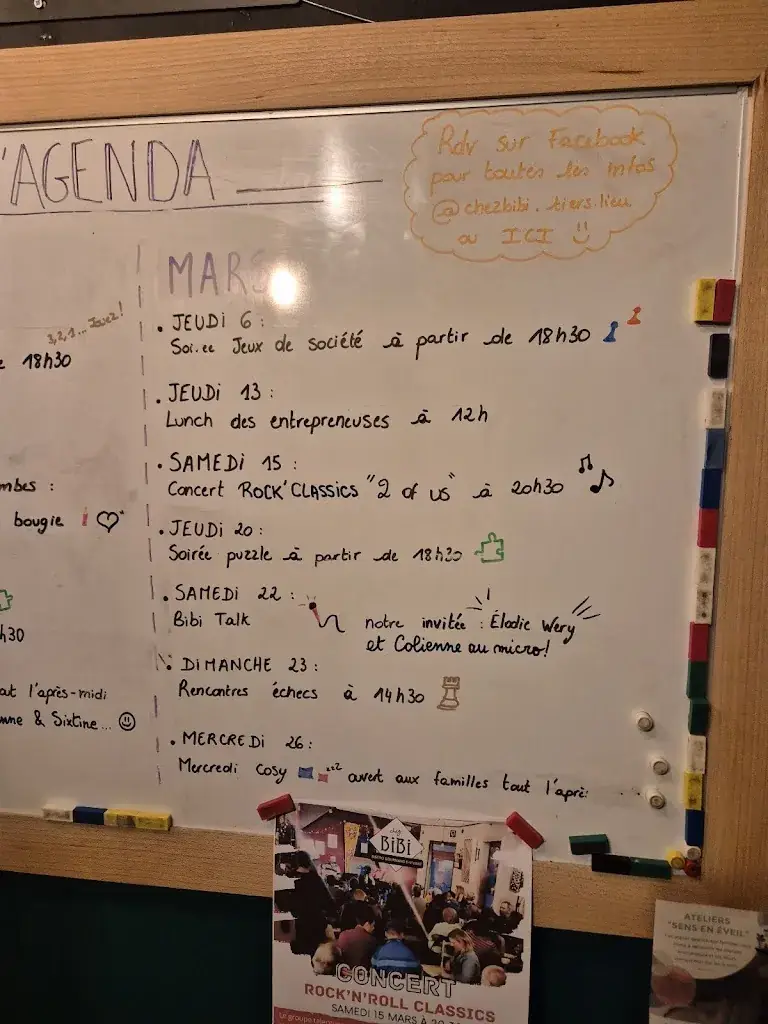 'AGENDA
Rdv sur Facebook
pour toutes les infos
@chezbibi.tiers.lieu
ou ICI
MARS
3,2,1... Jouez!
18h30
mbes :
bougie
h30
l'après-midi
& Sixtine...
• JEUDI 6 :
Soi.ee Jeux de société à partir de 18h30
• JEUDI 13 :
Lunch des entrepreneuses à 12h
• SAMEDI 15 :
Concert ROCK'CLASSICS "2 of us" à 20h30
• JEUDI 20 :
Soirée puzzle à partir de 18h30
• SAMEDI 22 :
Bibi Talk
notre invitée : Élodie Wery
et Colienne au micro!
• DIMANCHE 23 :
Rencontres échecs à 14h30
• MERCREDI 26 :
Mercredi Cosy zzz ouvert aux familles tout l'après
chez
BiBi
CONCERT
ROCK'N'ROLL CLASSICS
SAMEDI 15 MARS À 20
Le groupe
ATELIERS
"SENS EN ÉVEIL"